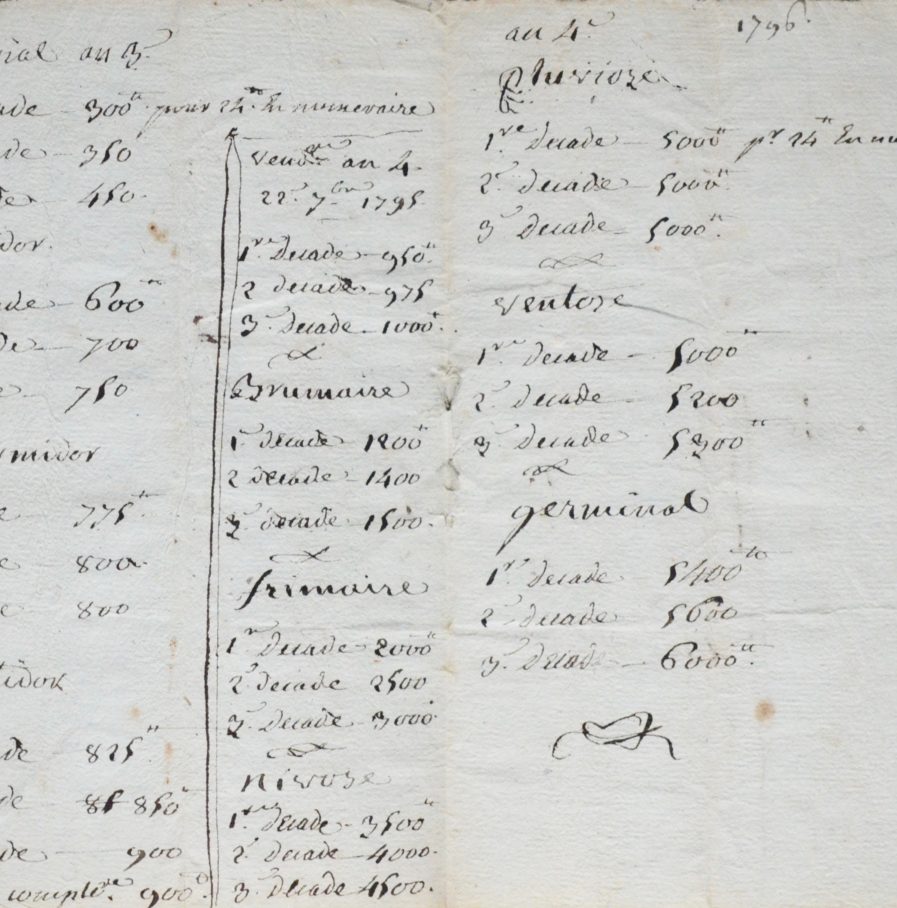 rial an 3e
ade - 300tt pour 24tt En numeraire
de - 350
de - 450
idor
ade - 600tt
de - 700
e - 750
rmidor
e - 775tt
e - 800
e - 800
tidor
de - 825tt
de - 85 850tt
de - 900
complre 900tt
vendre an 4
22e 7bre 1795
1re Decade - 950tt
2 decade - 975
3e Decade - 1000tt
Brumaire
1re Decade - 1200tt
2 decade - 1400
3e decade - 1500
frimaire
1re Decade - 2000tt
2e decade 2500
3e Decade - 3000
nivoze
1re Decade - 3500tt
2e Decade - 4000
3e Decade 4500
an 4e
1796
pluvioze
1re Decade - 5000tt pr 24tt En nu
2e Decade - 5000tt
3e Decade - 5000tt
ventoze
1re Decade - 5000tt
2e Decade - 5200
3e Decade - 5300tt
germinal
1re Decade - 5400tt
2e Decade - 5600
3e Decade - 6000tt